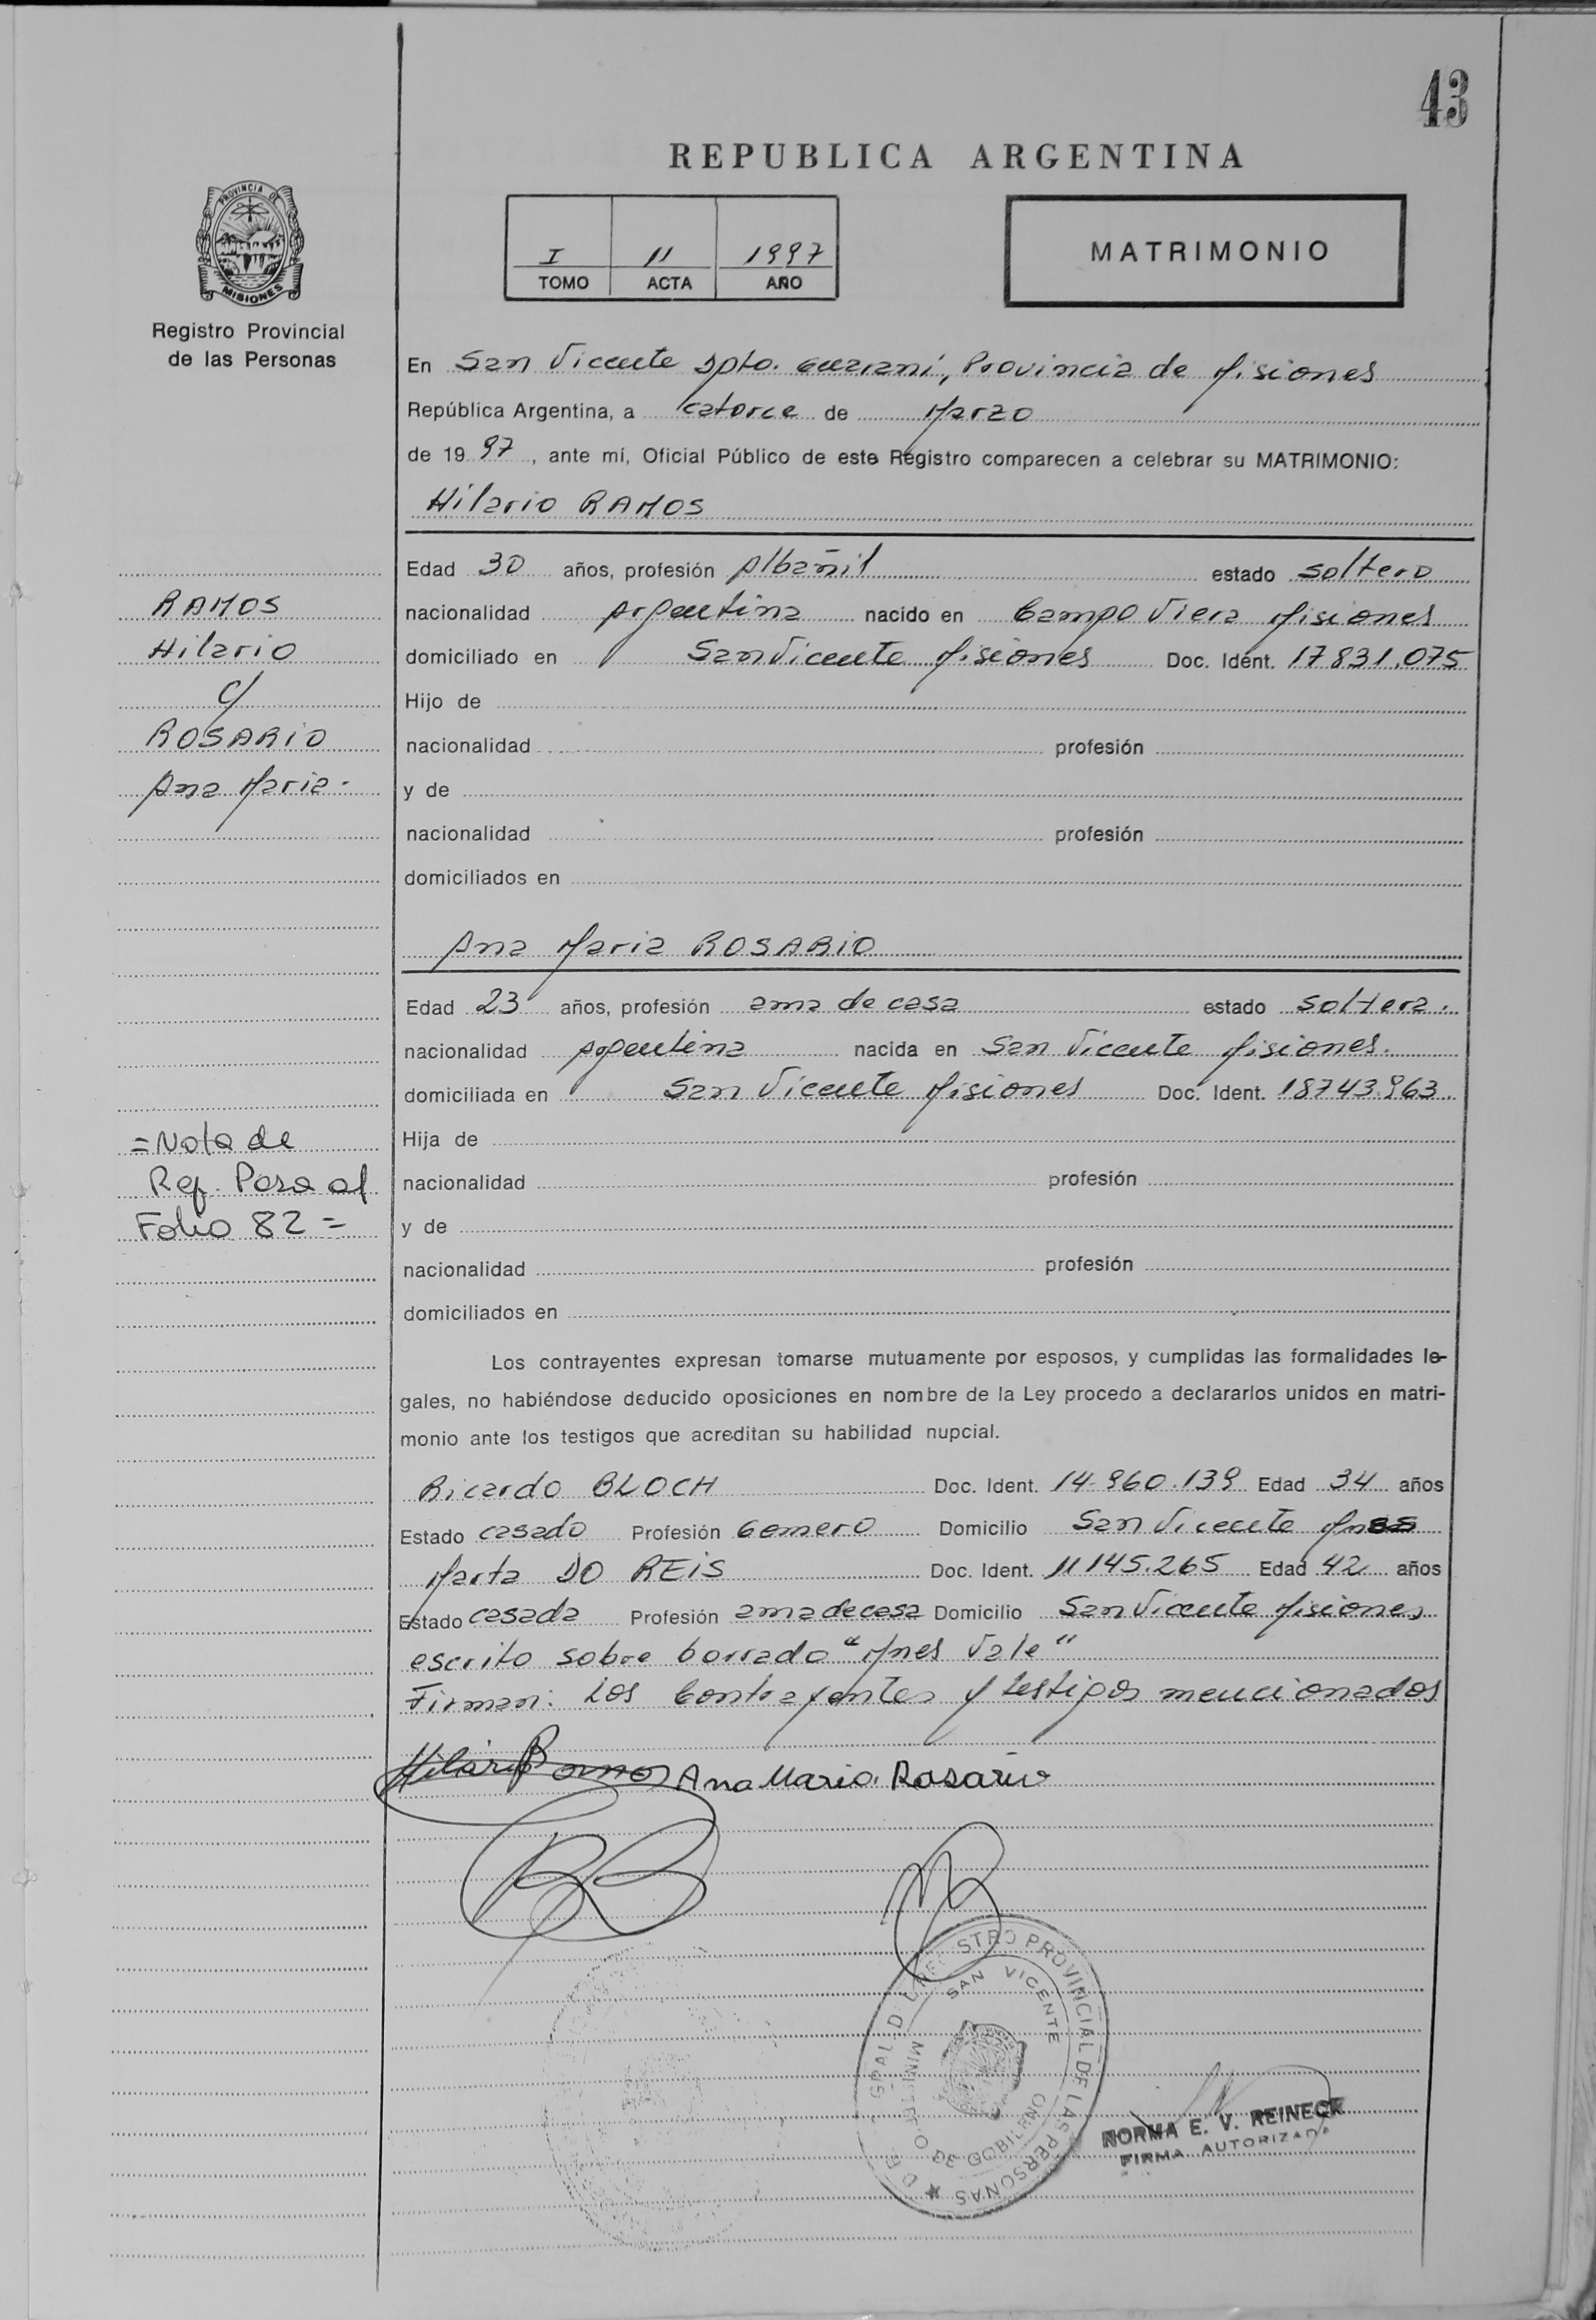 43
REPUBLICA ARGENTINA
I 11 1997
TOMO ACTA AÑO
MATRIMONIO
PROVINCIA DE
MISIONES
Registro Provincial
de las Personas
En San Vicente Dpto. Guarani, Provincia de Misiones
República Argentina, a catorce de Marzo
de 19 97, ante mí, Oficial Público de este Registro comparecen a celebrar su MATRIMONIO:
Hilario RAMOS
Edad 30 años, profesión Albañil estado soltero
nacionalidad Argentina nacido en Campo Viera Misiones
domiciliado en San Vicente Misiones Doc. Ident. 17831.075
Hijo de
nacionalidad profesión
y de
nacionalidad profesión
domiciliados en
RAMOS
Hilario
c/
ROSARIO
Ana Maria.
Ana Maria ROSARIO
Edad 23 años, profesión ama de casa estado soltera.
nacionalidad Argentina nacida en San Vicente Misiones.
domiciliada en San Vicente Misiones Doc. Ident. 18743.963.
Hija de
nacionalidad profesión
y de
nacionalidad profesión
domiciliados en
=Nota de
Ref. Pasa al
Folio 82=
Los contrayentes expresan tomarse mutuamente por esposos, y cumplidas las formalidades le-
gales, no habiéndose deducido oposiciones en nombre de la Ley procedo a declararlos unidos en matri-
monio ante los testigos que acreditan su habilidad nupcial.
Ricardo BLOCH Doc. Ident. 14.960.139 Edad 34 años
Estado casado Profesión Gomero Domicilio San Vicente Mnes
Marta DO REIS Doc. Ident. 11145.265 Edad 42 años
Estado casada Profesión ama de casa Domicilio San Vicente Misiones
escrito sobre borrado "Mnes Vale"
Firman: Los Contrayentes y testigos mencionados
Hilario Ramos Ana Maria Rosario
REGISTRO PROVINCIAL DE LAS PERSONAS
SAN VICENTE
MINISTERIO DE GOBIERNO
NORMA E. V. REINECK
FIRMA AUTORIZADA